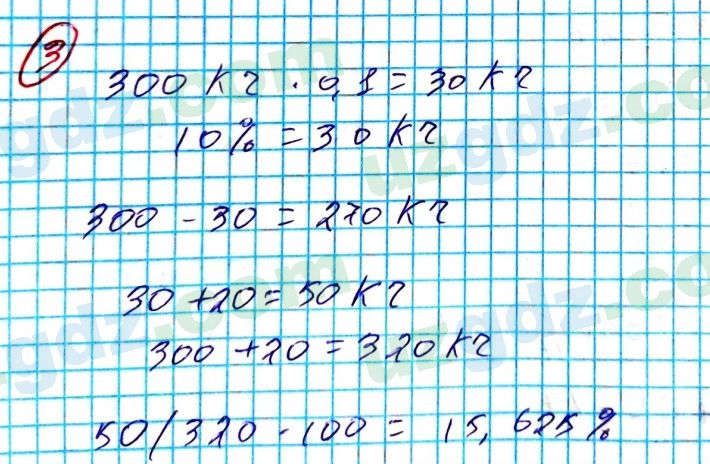 3
300 кг · 0,1 = 30 кг
10% = 30 кг
300 - 30 = 270 кг
30 + 20 = 50 кг
300 + 20 = 320 кг
50/320 · 100 = 15,625%
uzgdz.com
uzgdz.com